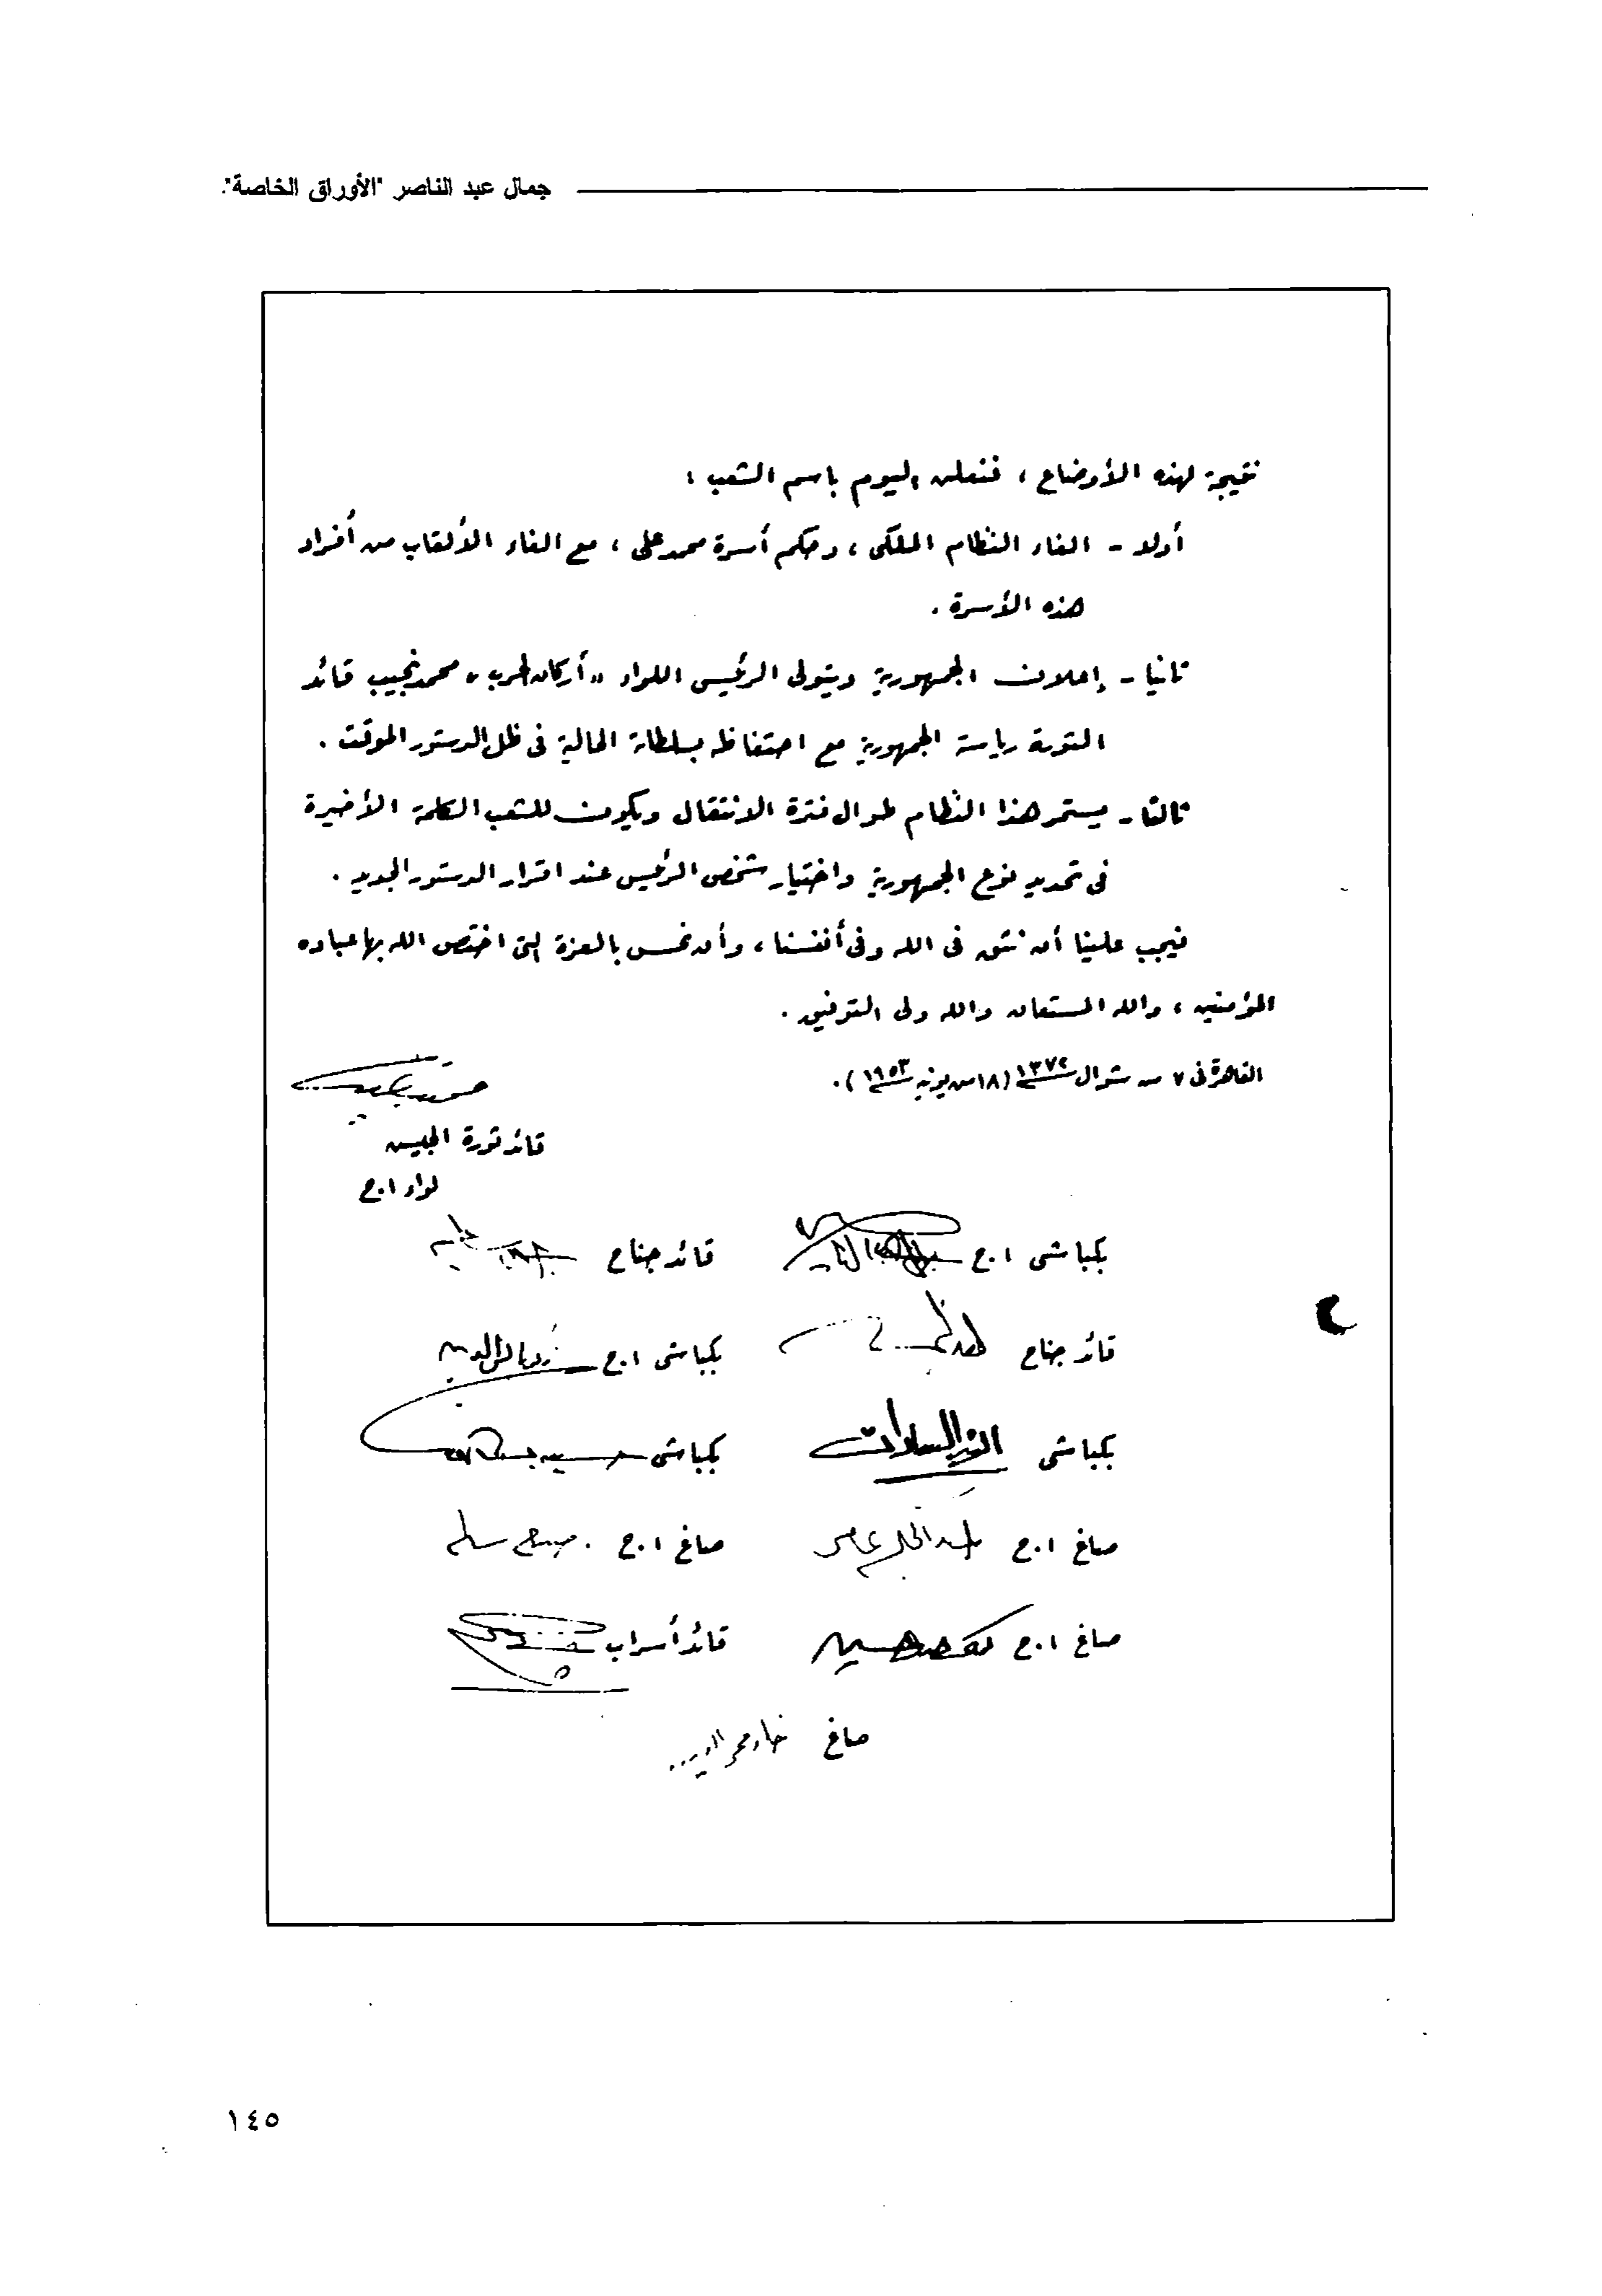 جمال عبد الناصر "الأوراق الخاصة".
نتيجة لهذه الأوضاع ، فنعلن اليوم باسم الشعب :
أولا - الغاء النظام الملكى ، وحكم أسرة محمد على ، مع الغاء الألقاب من أفراد
هذه الأسرة .
ثانيا - إعلان الجمهورية ويتولى الرئيس اللواء «أركان الحرب» محمد نجيب قائد
الثورة رياسة الجمهورية مع احتفاظه بسلطاته الحالية فى ظل الدستور الموقت .
ثالثا - يستمر هذا النظام طوال فترة الانتقال ويكون للشعب الكلمة الأخيرة
فى تحديد نوع الجمهورية واختيار شخص الرئيس عند اقرار الدستور الجديد .
فيجب علينا أن نثق فى الله وفى أنفسنا ، وأن نحس بالعزة التى اختص الله بها عباده
المؤمنين ، والله المستعان والله ولى التوفيق .
القاهرة فى ٧ من شوال ١٣٧٢ (١٨ من يونيه ١٩٥٣) .
قائد ثورة الجيش
لواء ا.ح
بكباشى ا.ح قائد جناح
قائد جناح بكباشى ا.ح زكريا محى الدين
بكباشى أنور السادات بكباشى حسين
صاغ ا.ح عبد الحكيم عامر صاغ ا.ح صلاح سالم
صاغ ا.ح كمال حسين قائد أسراب
صاغ خالد محى الدين
١٤٥